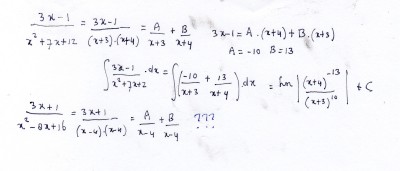 (3x-1)/(x²+7x+12) = (3x-1)/((x+3)·(x+4)) = A/(x+3) + B/(x+4)   3x-1 = A·(x+4) + B·(x+3)
A = -10 B = 13
∫ (3x-1)/(x²+7x+2) · dx = ∫ (-10/(x+3) + 13/(x+4)) · dx = ln |(x+4)^-13/(x+3)^10| + C
(3x+1)/(x²-8x+16) = (3x+1)/((x-4)·(x-4)) = A/(x-4) + B/(x-4) ???